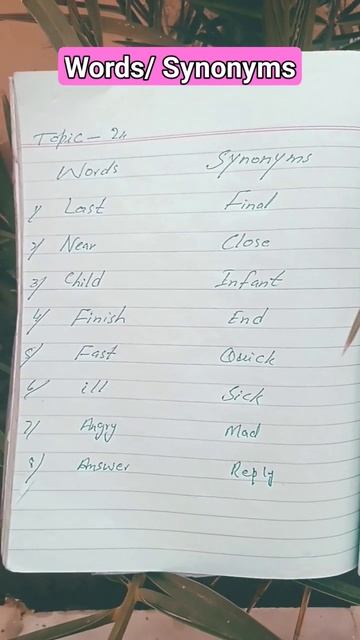 Words/ Synonyms
Topic - 24
Words Synonyms
1) Last Final
2) Near Close
3) Child Infant
4) Finish End
5) Fast Quick
6) ill Sick
7) Angry Mad
8) Answer Reply